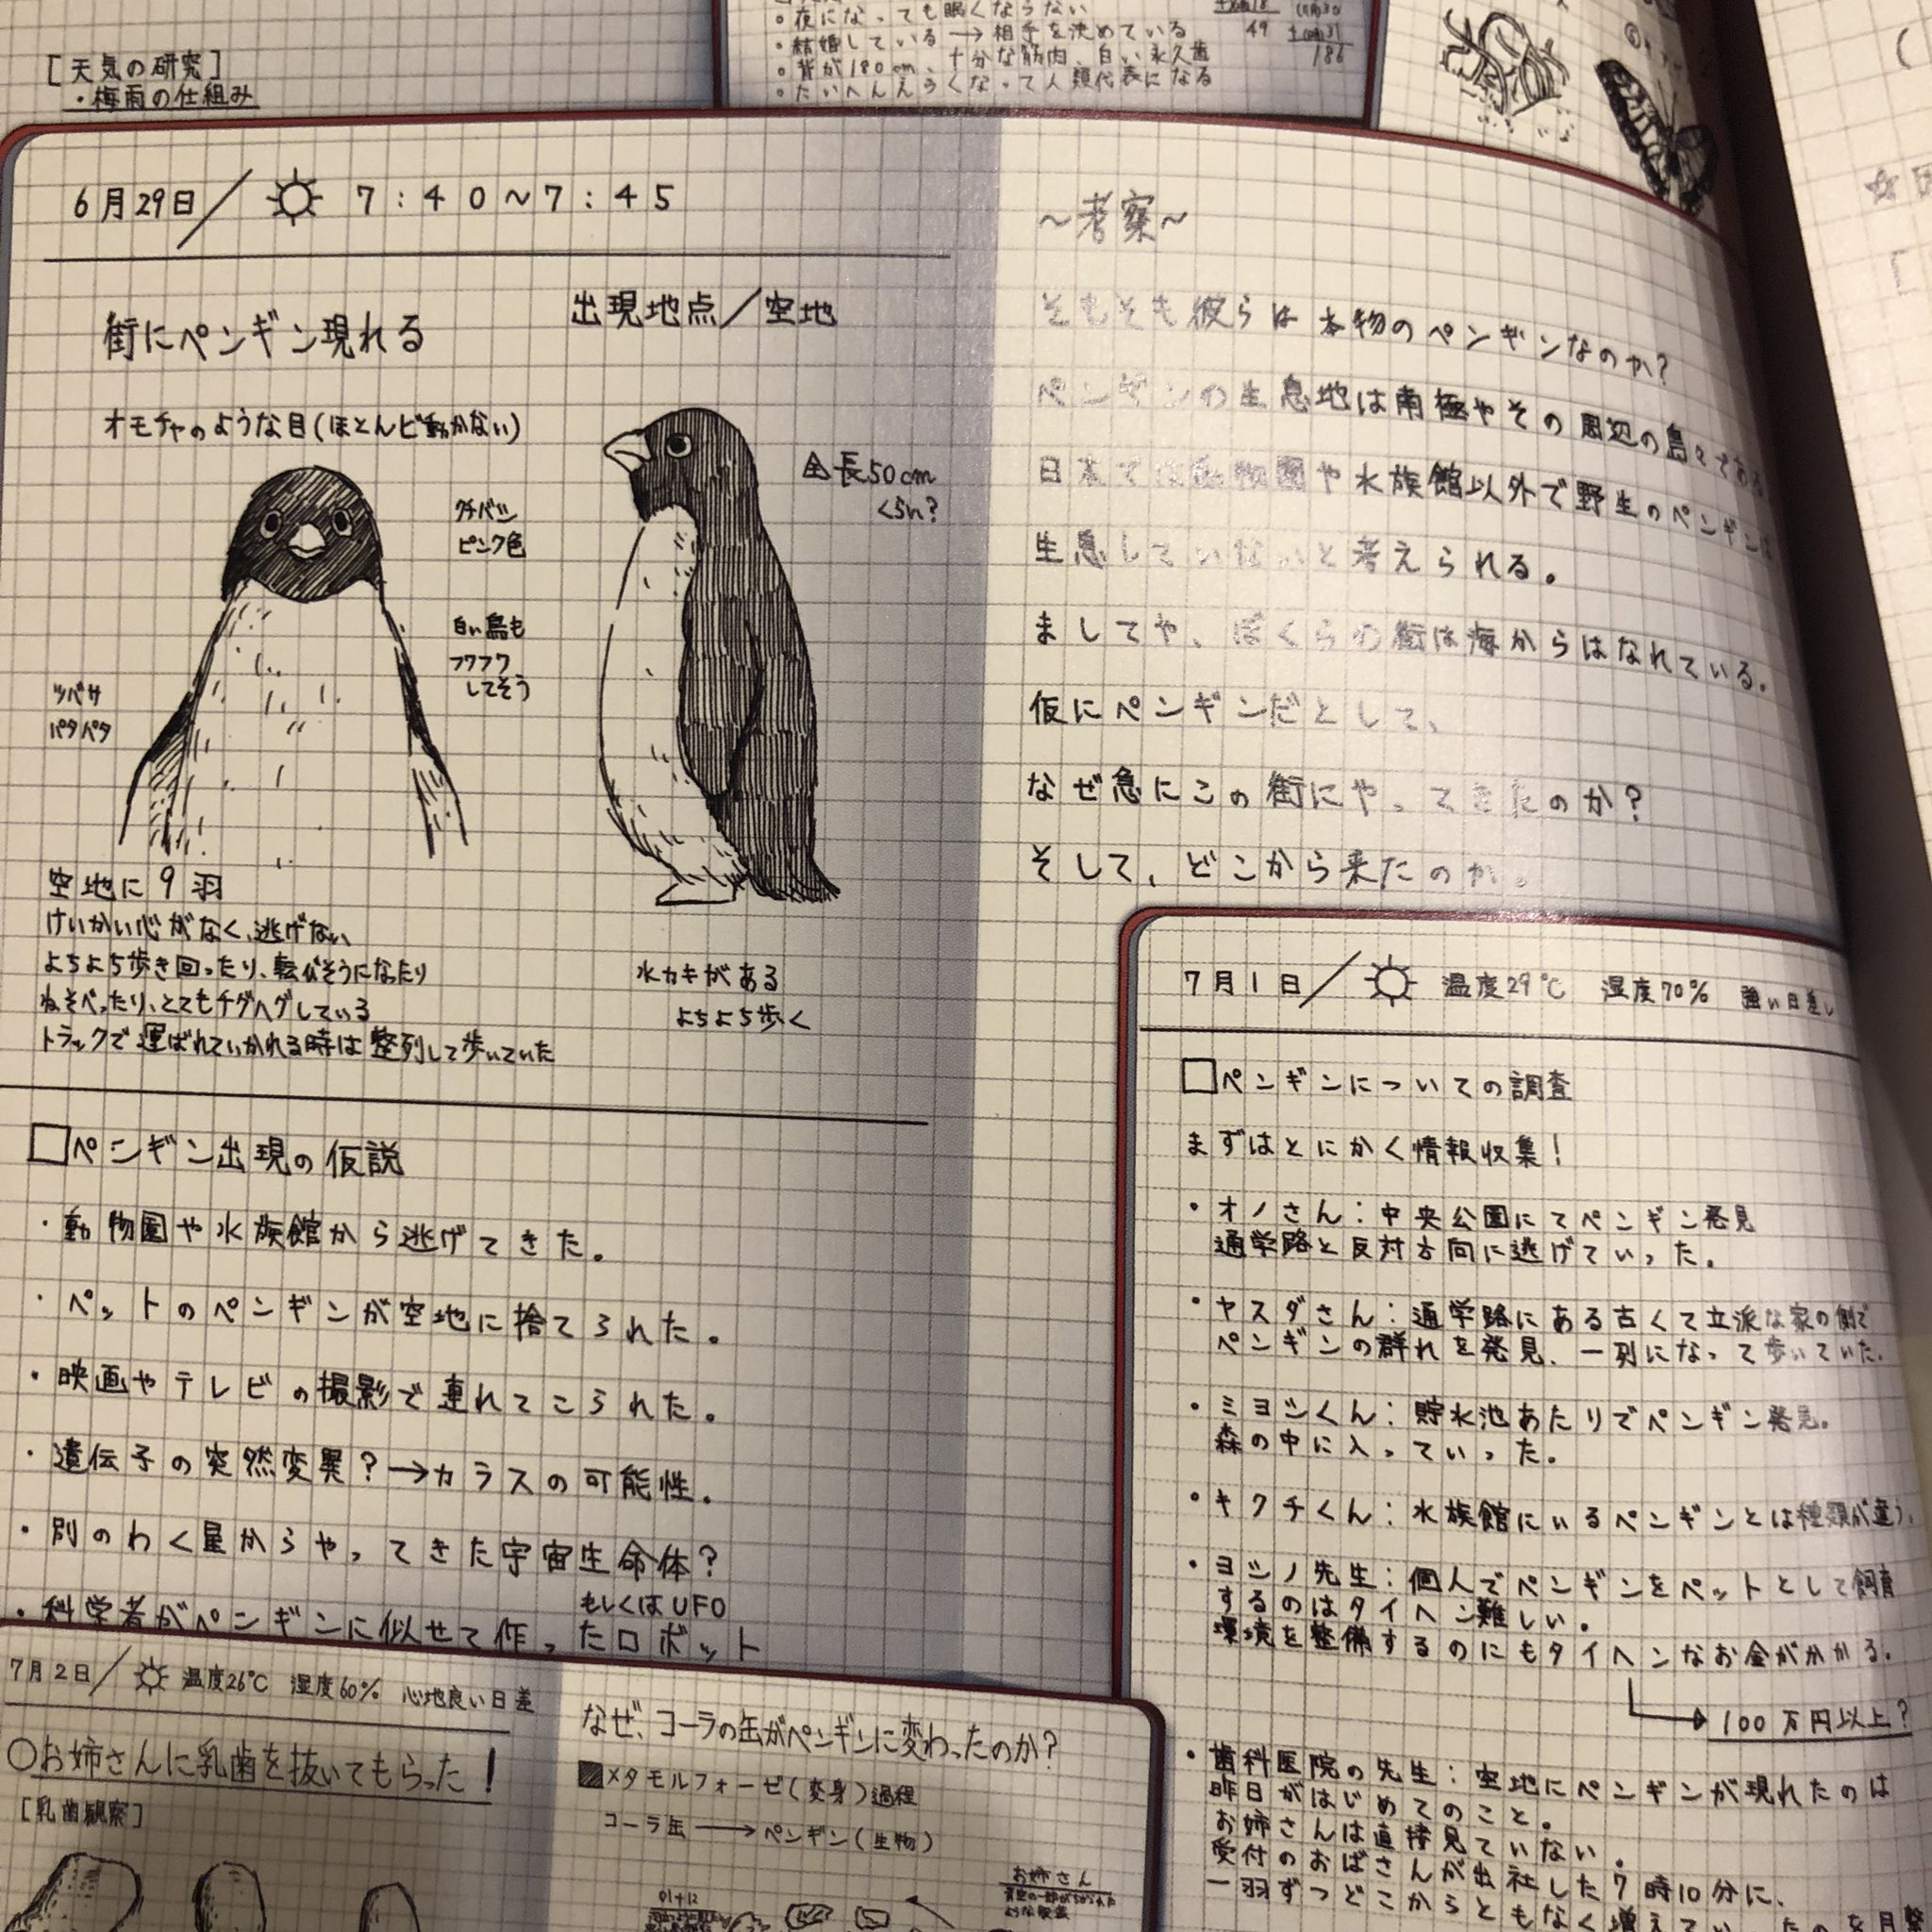 [天気の研究]
・梅雨の仕組み
。夜になっても眠くならない
。結婚している→相手を決めている
。背が180cm、十分な筋肉、白い永久歯
。たいへんえらくなって人類代表になる
49
186
6月29日/ 7:40~7:45
街にペンギン現れる
出現地点/空地
オモチャのような目(ほとんど動かない)
全長50cm
くらい?
クチバシ
ピンク色
白い鳥も
フワフワ
してそう
ツバサ
パタパタ
空地に9羽
けいかい心がなく、逃げない
よちよち歩き回ったり、転びそうになったり
ねそべったり、とてもチグハグしている
トラックで運ばれていかれる時は整列して歩いていた
水カキがある
よちよち歩く
□ペンギン出現の仮説
・動物園や水族館から逃げてきた。
・ペットのペンギンが空地に捨てられた。
・映画やテレビの撮影で連れてこられた。
・遺伝子の突然変異?→カラスの可能性。
・別のわく星からやってきた宇宙生命体?
もしくはUFO
・科学者がペンギンに似せて作ったロボット
~考察~
そもそも彼らは本物のペンギンなのか?
ペンギンの生息地は南極やその周辺の島々である
日本では動物園や水族館以外で野生のペンギンは
生息していないと考えられる。
ましてや、ぼくらの街は海からはなれている。
仮にペンギンだとして、
なぜ急にこの街にやってきたのか?
そして、どこから来たのか。
7月1日/ 温度29℃ 湿度70% 強い日差し
□ペンギンについての調査
まずはとにかく情報収集!
・オノさん:中央公園にてペンギン発見
通学路と反対方向に逃げていった。
・ヤスダさん:通学路にある古くて立派な家の側で
ペンギンの群れを発見、一列になって歩いていた。
・ミヨシくん:貯水池あたりでペンギン発見。
森の中に入っていった。
・キクチくん:水族館にいるペンギンとは種類が違う。
・ヨシノ先生:個人でペンギンをペットとして飼育
するのはタイヘン難しい。
環境を整備するのにもタイヘンなお金がかかる。
→100万円以上?
・歯科医院の先生:空地にペンギンが現れたのは
昨日がはじめてのこと。
お姉さんは直接見ていない。
受付のおばさんが出社した7時10分に、
一羽ずつどこからともなく増えていったのを目撃
7月2日/ 温度26℃ 湿度60% 心地良い日差
○お姉さんに乳歯を抜いてもらった!
[乳歯観察]
なぜ、コーラの缶がペンギンに変わったのか?
■メタモルフォーゼ(変身)過程
コーラ缶→ペンギン(生物)
お姉さん